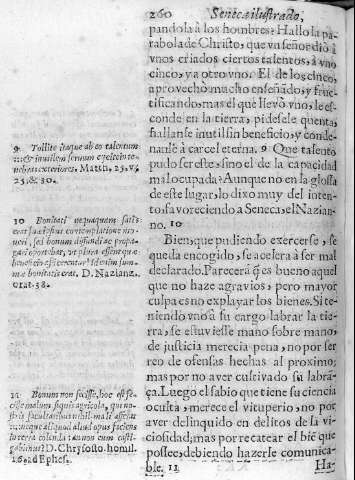 260 Seneca ilustrado,
pandola à los hombres? Hallo la pa-
rabola de Christo, que vn señor diò à
vnos criados ciertos talentos, à vno
cinco, y a otro vno. El de los cinco,
aprovechò mucho enseñado, y fru-
ctificando, mas el que llevò vno, le es-
conde en la tierra, pidesele quenta,
hallanse inutil sin beneficio, y conde-
nanle à carcel eterna. 9 Que talento
pudo ser este, sino el de la capacidad
mal ocupada? Aunque no en la glossa
de este lugar, lo dixo muy del inten-
to, favoreciendo à Seneca, el Nazian-
no. 10
Bien, que pudiendo exercerse, se
queda encogido, se acelera à ser mal
declarado. Parecerà q̃ es bueno aquel
que no haze agravios, pero mayor
culpa es no explayar los bienes. Si te-
niendo vno à su cargo labrar la tie-
rra, se estuviesse mano sobre mano,
de justicia merecia pena, no por ser
reo de ofensas hechas al proximo,
mas por no aver cultivado su labrã-
ça. Luego el sabio que tiene su ciencia
oculta, merece el vituperio, no por
aver delinquido en delitos de la vi-
ciosidad, mas por recatear el biẽ que
possee, debiendo hazerle comunica-
ble. 11 Ha-
9 Tollite itaque ab eo talentum
& inutilem servum ejicite in te-
nebras exteriores, Matth. 25. v.
25. & 30.
10 Bonitati nequaquam satis
erat sua ipsius contemplatione mo-
veri, sed bonum diffundi ac propa-
gari oportebat, ut plura essent quæ
beneficio afficerentur: id enim sum-
mæ bonitatis erat, D. Nazianz.
orat. 38.
11 Bonum non fecisse, hoc est fe-
cisse malum
D. Chrysosto. homil.
16. ad Ephes.